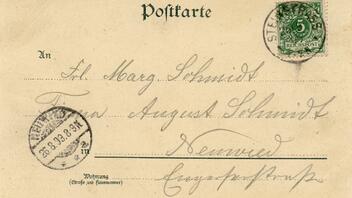 Postkarte
STEIN-STRASS
5
REICHSPOST
An
Frl. Marg. Schmidt
Firma August Schmidt
NEUWIED
26.8.99.8-9N.
in
Neuwied
Wohnung
(Straße und Hausnummer)
Engerserstraße